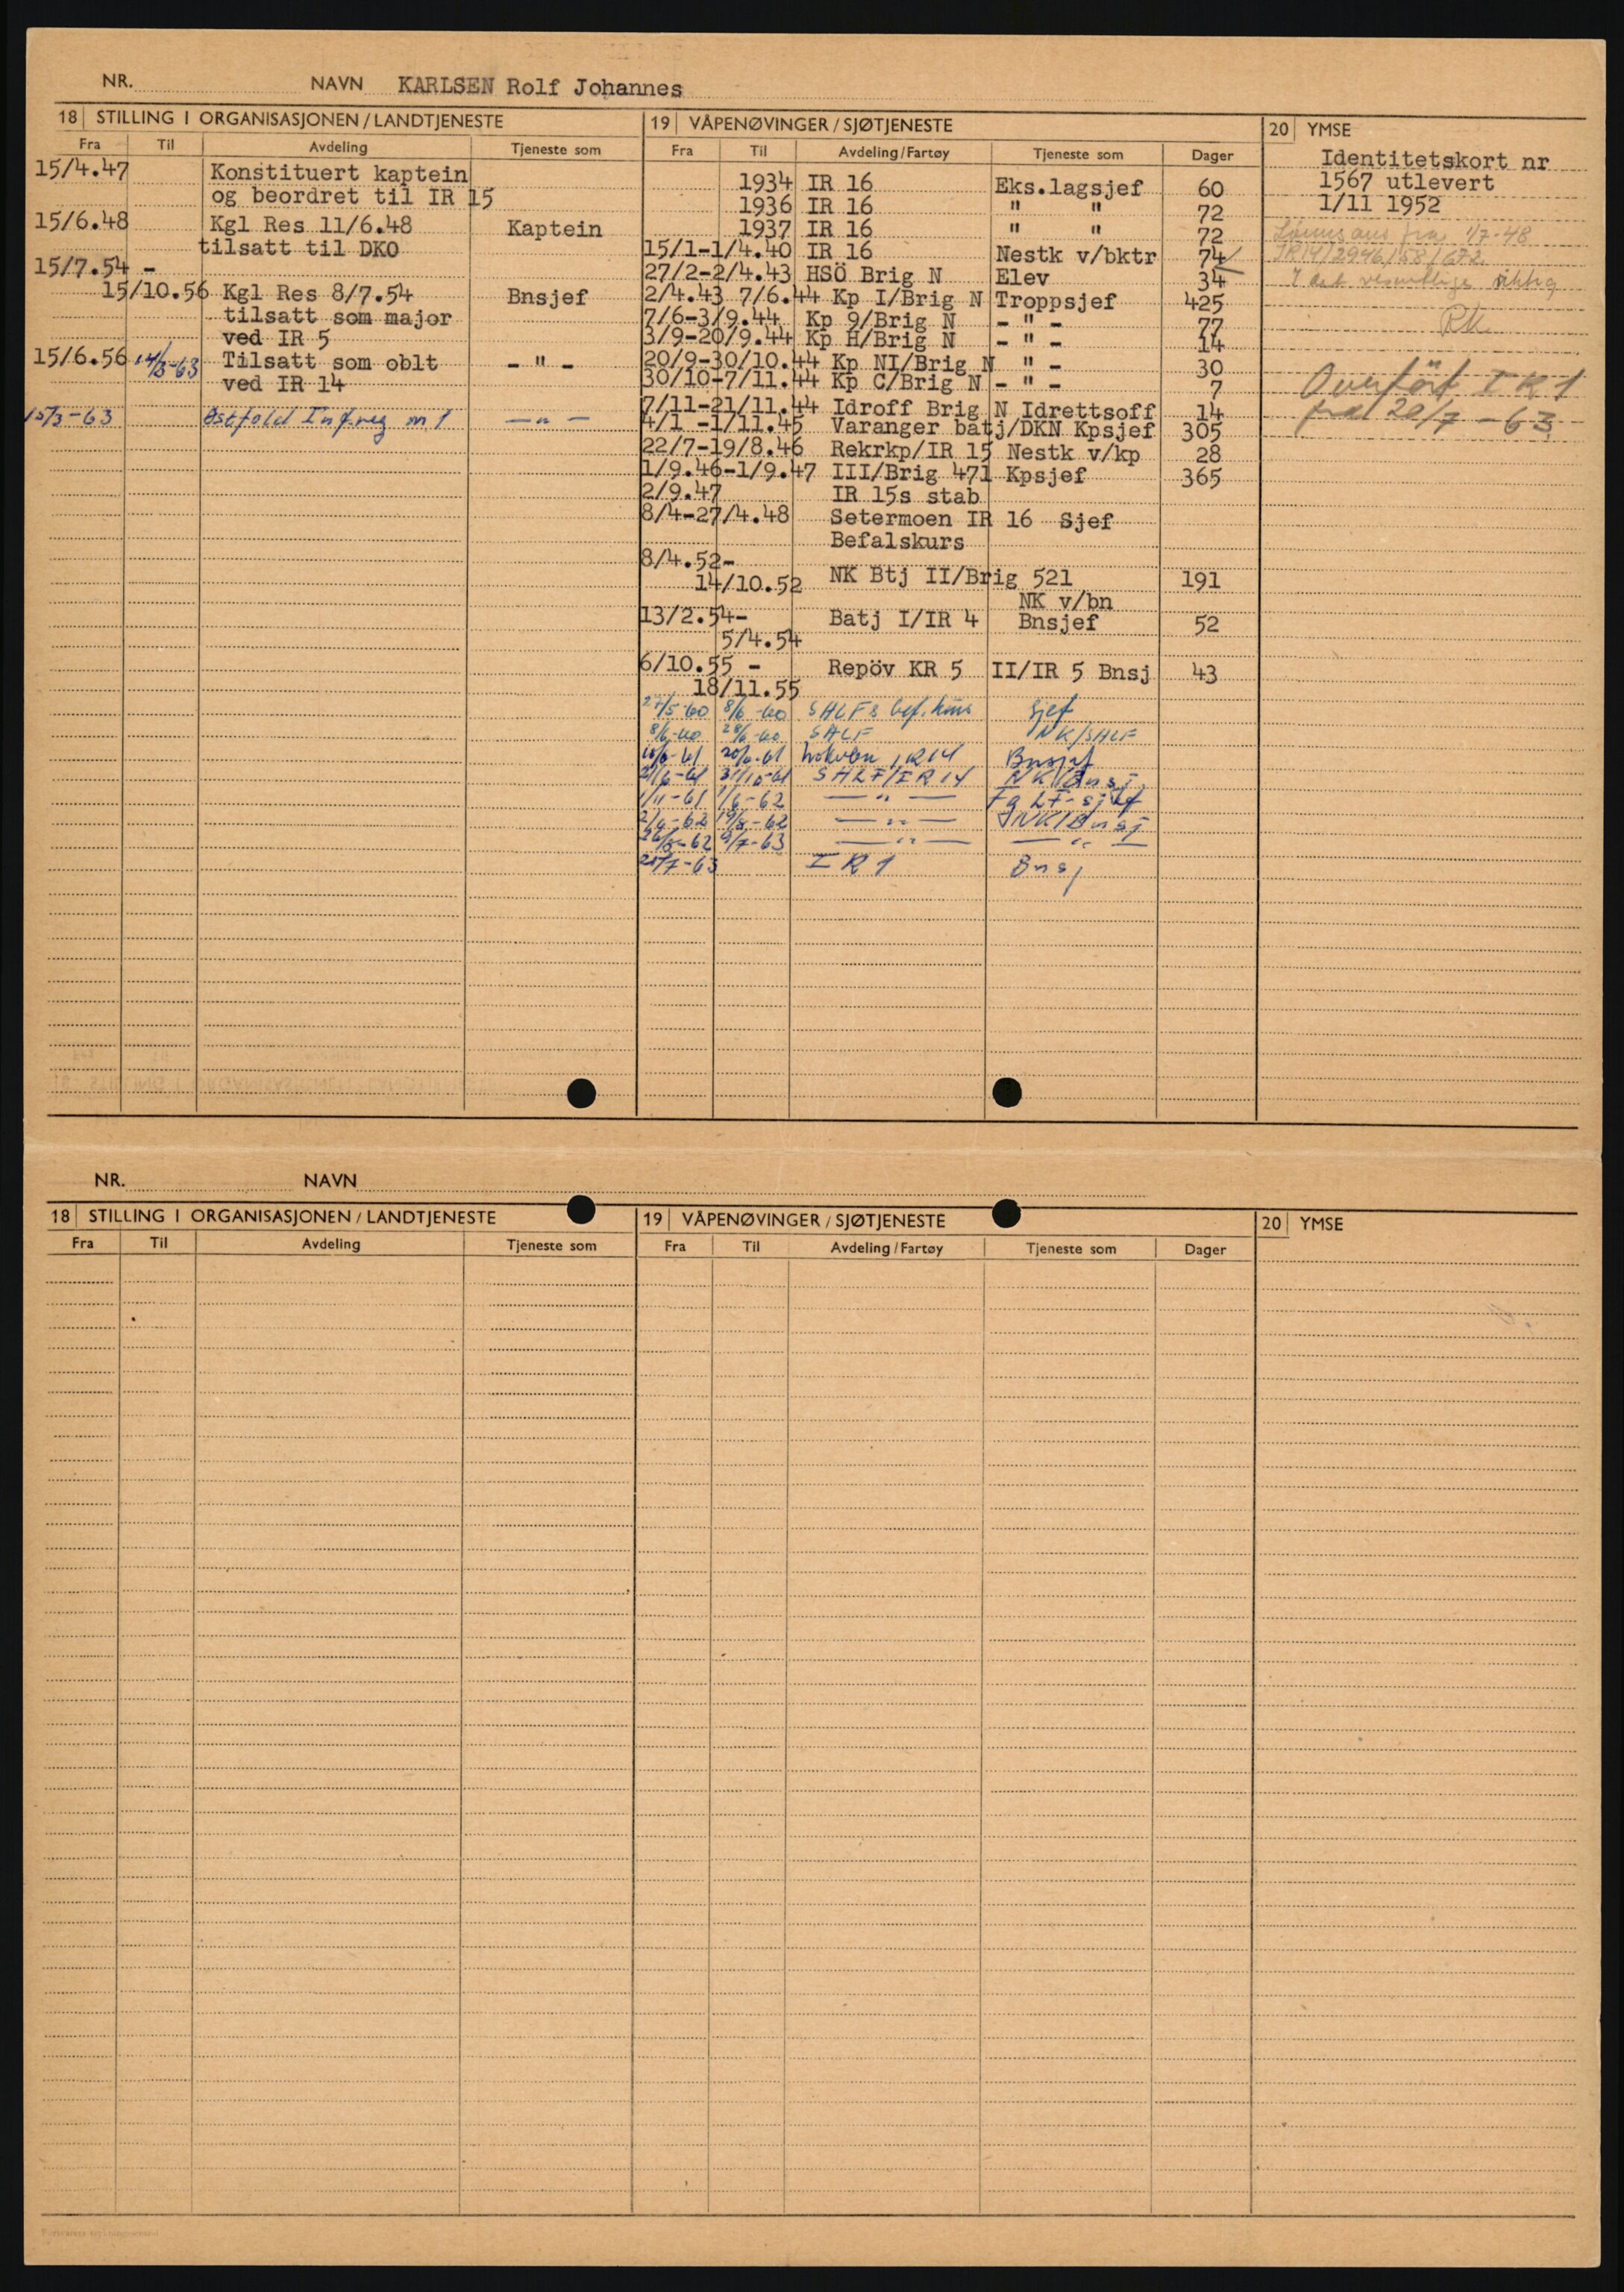 NR. NAVN KARLSEN Rolf Johannes
18 STILLING I ORGANISASJONEN / LANDTJENESTE
Fra Til Avdeling Tjeneste som
15/4.47 Konstituert kaptein
og beordret til IR 15
15/6.48 Kgl Res 11/6.48 Kaptein
tilsatt til DKO
15/7.54 -
15/10.56 Kgl Res 8/7.54 Bnsjef
tilsatt som major
ved IR 5
15/6.56 14/3-63 Tilsatt som oblt - " -
ved IR 14
15/3-63 Østfold Inf.reg nr 1 - " -
19 VÅPENØVINGER / SJØTJENESTE
Fra Til Avdeling/Fartøy Tjeneste som Dager
1934 IR 16 Eks.lagsjef 60
1936 IR 16 " " 72
1937 IR 16 " " 72
15/1-1/4.40 IR 16 Nestk v/bktr 74
27/2-2/4.43 HSÖ Brig N Elev 34
2/4.43 7/6.44 Kp I/Brig N Troppsjef 425
7/6-3/9.44 Kp 9/Brig N - " - 77
3/9-20/9.44 Kp H/Brig N - " - 14
20/9-30/10.44 Kp NI/Brig N " - 30
30/10-7/11.44 Kp C/Brig N - " - 7
7/11-21/11.44 Idroff Brig N Idrettsoff 14
4/1 -1/11.45 Varanger batj/DKN Kpsjef 305
22/7-19/8.46 Rekrkp/IR 15 Nestk v/kp 28
1/9.46-1/9.47 III/Brig 471 Kpsjef 365
2/9.47 IR 15s stab
8/4-27/4.48 Setermoen IR 16 Sjef
Befalskurs
8/4.52-
14/10.52 NK Btj II/Brig 521 191
NK v/bn
13/2.54- Batj I/IR 4 Bnsjef 52
5/4.54
6/10.55 - Repöv KR 5 II/IR 5 Bnsj 43
18/11.55
27/5-60 8/6-60 SHLFs bef. kurs Sjef
8/6-60 28/6-60 SHLF NK/SHLF
20/6-61 IR 14 Bnsjef
21/6-61 31/10-61 SHLF/IR 14 NK/Bnsj
1/11-61 1/6-62 - " - Fg LF-sjef
2/6-62 19/8-62 - " - NK/Bnsj
62 9/7-63 - " - - " -
7-63 IR 1 Bnsj
20 YMSE
Identitetskort nr
1567 utlevert
1/11 1952
fra 1/7-48
IR14/2946/58/672
I det vesentlige riktig
RK
Overført IR 1
fra 20/7 - 63
NR. NAVN
18 STILLING I ORGANISASJONEN / LANDTJENESTE
Fra Til Avdeling Tjeneste som
19 VÅPENØVINGER / SJØTJENESTE
Fra Til Avdeling / Fartøy Tjeneste som Dager
20 YMSE